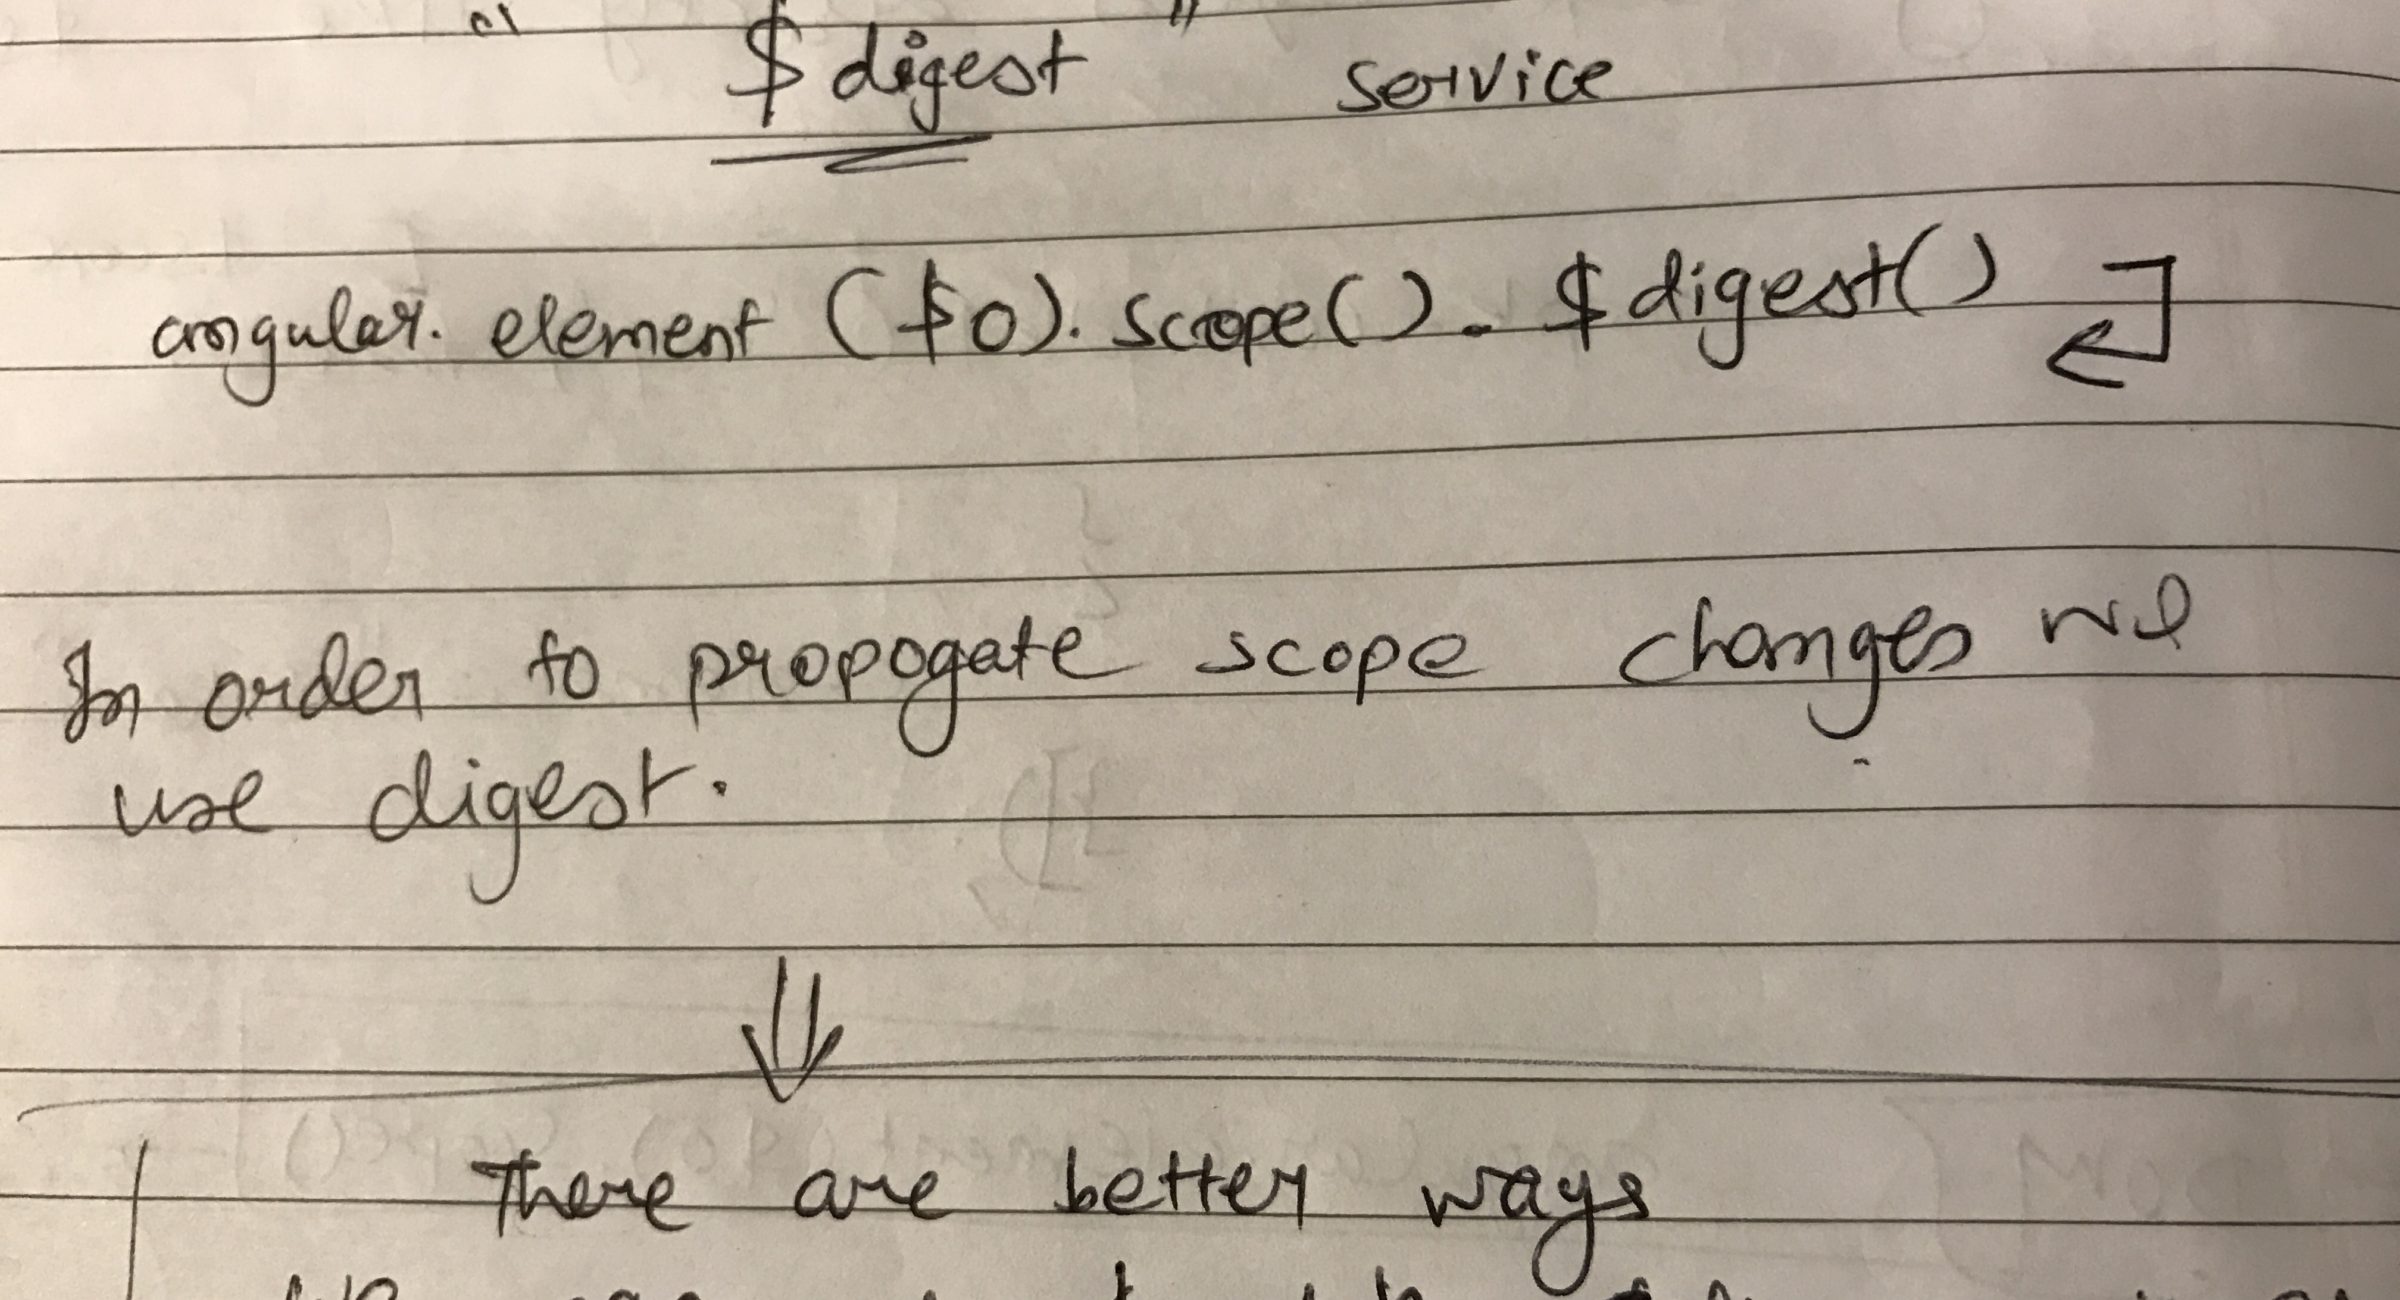 " $digest " service
angular. element ($0). scope(). $digest() ↵
In order to propogate scope changes we
use digest.
⇓
There are better ways